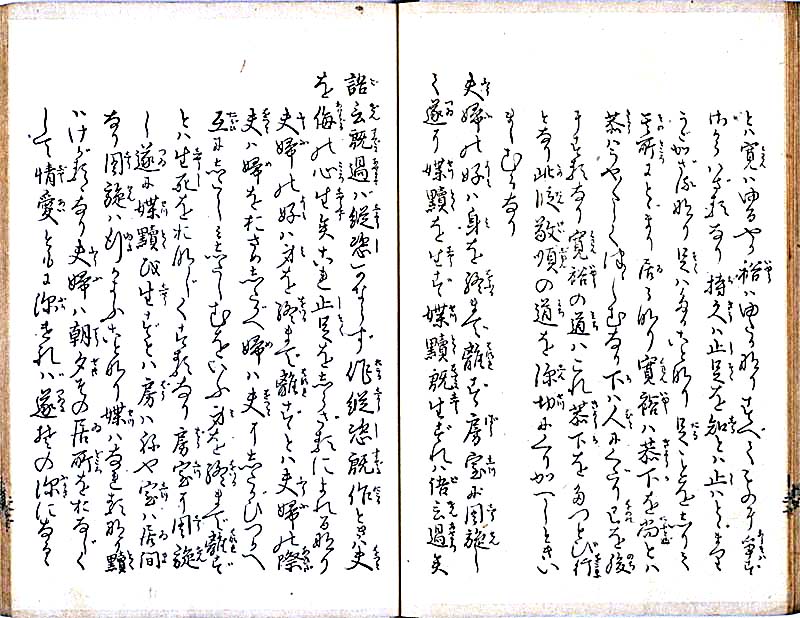 とハ寛ハゆるやか裕ハゆたか也すべてものに争ず
持久ハ止足を知とハ止ハとまりて
うごかざる也足ハたることなり足ことをしりて
其所にとどまり居る也寛裕ハ恭下を尚とハ
恭ハうやうやしくつつしむなり下ハ人にくだり己を後
にするなり寛裕の道ハこれ恭下をたつとび行
となり此段敬順の道を深切にくり返しときい
ましむるなり
夫婦の好ハ身を終まで離ず房室に周旋し
て遂に媟黷を生ず媟黷既生ずれハ語言過矣
語言既過バ縦恣かならず作縦恣既作ときハ夫
を侮の心生矣これ止足をしらざるによれる也
夫婦の好ハ身を終まで離ずとハ夫婦の際
夫ハ婦をしたがへ婦ハ夫にしたがひつかへ
互にしたしみしたしむをいふ身を終まで離ず
とハ生死をおなじくするなり房室に周旋
し遂に媟黷を生ずとハ房ハねや室ハ居間
なり周旋ハ行かふこと也媟ハなれる也黷
ハけがるなり夫婦ハ朝夕その居所をおなじく
して情愛ともに深けれハ遂その深になれ